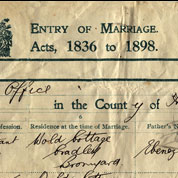 ENTRY OF MARRIAGE.
Acts, 1836 to 1898.
Office
in the County of
fession. Residence at the time of Marriage. Father's N
ant Wold Cottage Ebenez
Cradley
Bromyard